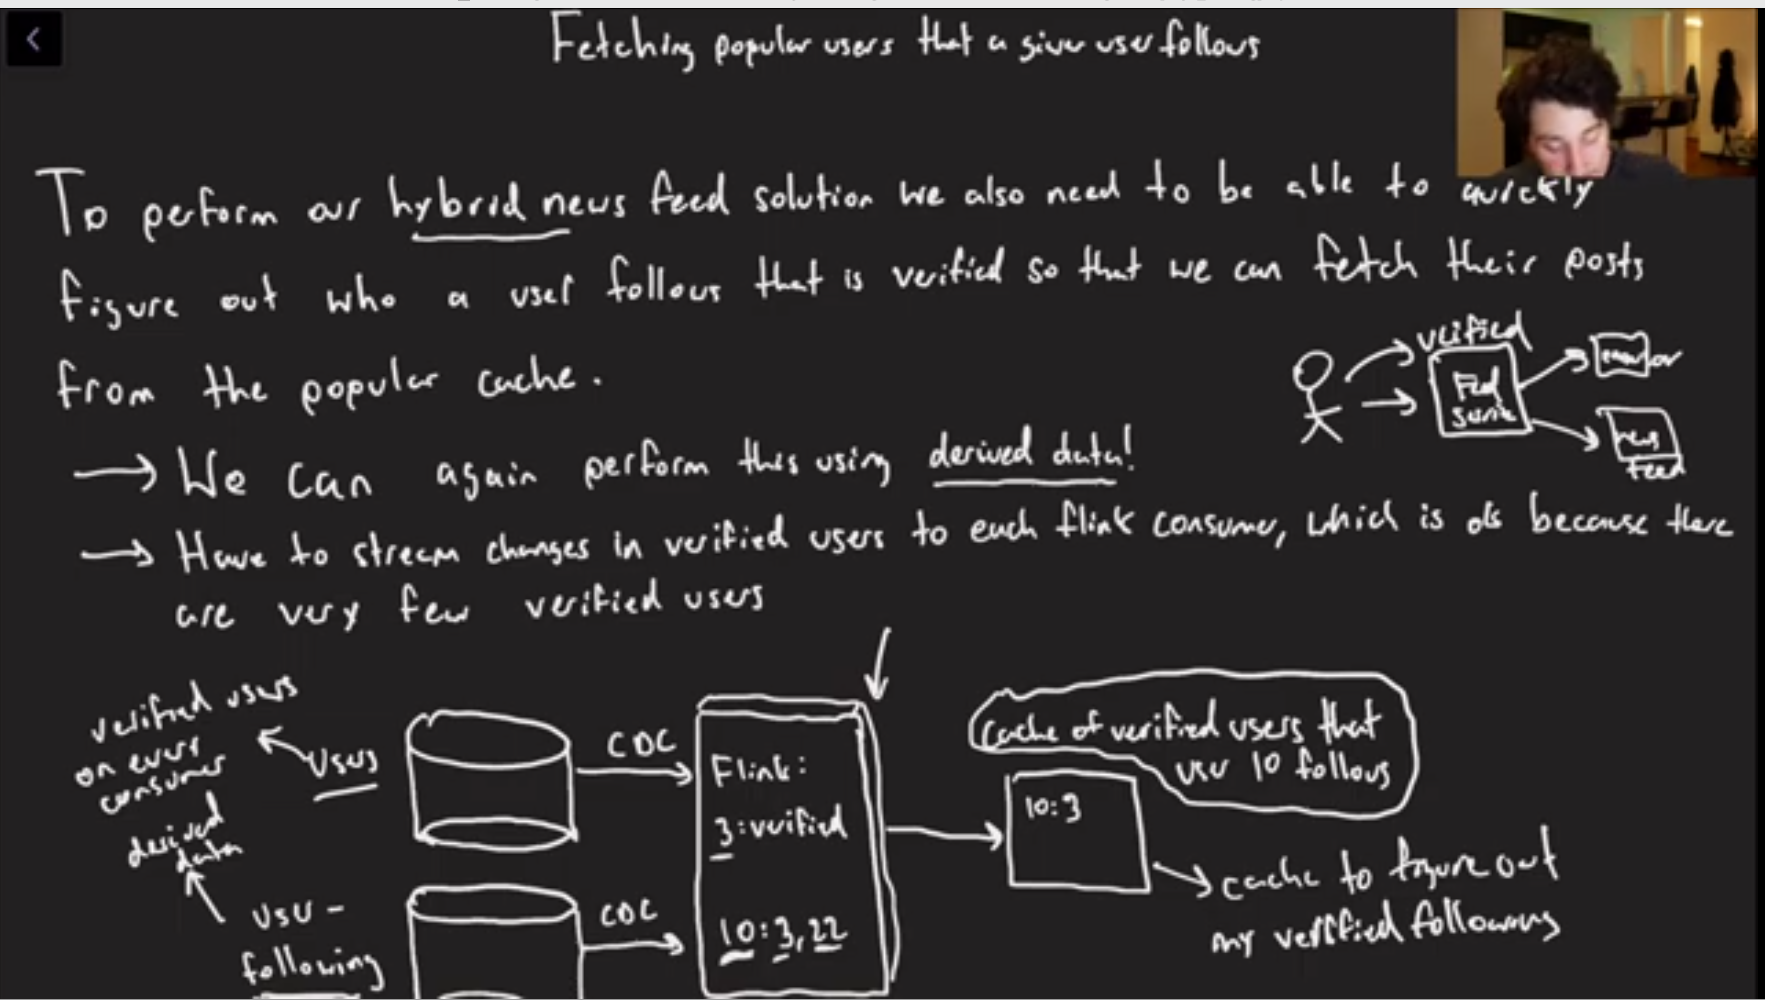 Fetching popular users that a given user follows
To perform our hybrid news feed solution we also need to be able to quickly
figure out who a user follows that is verified so that we can fetch their posts
from the popular cache.
→ We can again perform this using derived data!
→ Have to stream changes in verified users to each flink consumer, which is ok because there
are very few verified users
verified
Feed
service
news
feed
verified users
on every
consumer
Users
derived
data
user-
following
CDC
CDC
Flink:
3: verified
10: 3, 22
cache of verified users that
user 10 follows
10:3
cache to figure out
my verified following